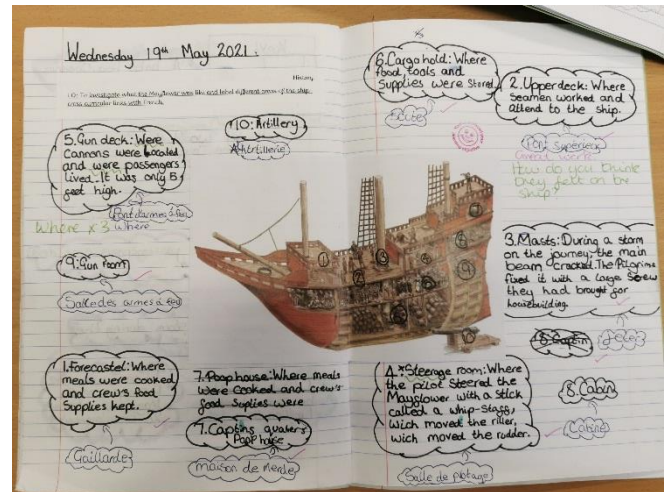 Wednesday 19th May 2021.
History
LO: To investigate what the Mayflower was like and label different areas of the ship.
cross curricular links with French.
5. Gun deck: Were
Cannons were located
and were passengers
lived. It was only 5
feet high.
Pont d'armes à feu
Where x 3 where
10: Artillery
Artillerie
9: Gun room
Salle des armes à feu
1. Forecastel: Where
meals were cooked
and crew's food
Supplies kept.
Gaillarde
7. Poop house: Where meals
were cooked and crew's
food suplies were
7. Captins quater's
Poop house
maison de merde
6. Cargo hold: Where
food, tools and
Supplies were Stored.
2. Upper deck: Where
Seamen worked and
attend to the ship.
Pont Superieur
Great work
How do you think
they felt on the
ship?
3. Masts: During a storm
on the journey, the main
beam Cracked. The Pilgrims
fixed it with a large Screw
they had brought for
housebuilding.
8. Captin
4. Steerage room: Where
the pilot Steered the
Mayflower with a Stick
called a whip-Staff,
wich moved the riller,
wich moved the rudder.
Salle de pilotage
8. Cabin
Cabine